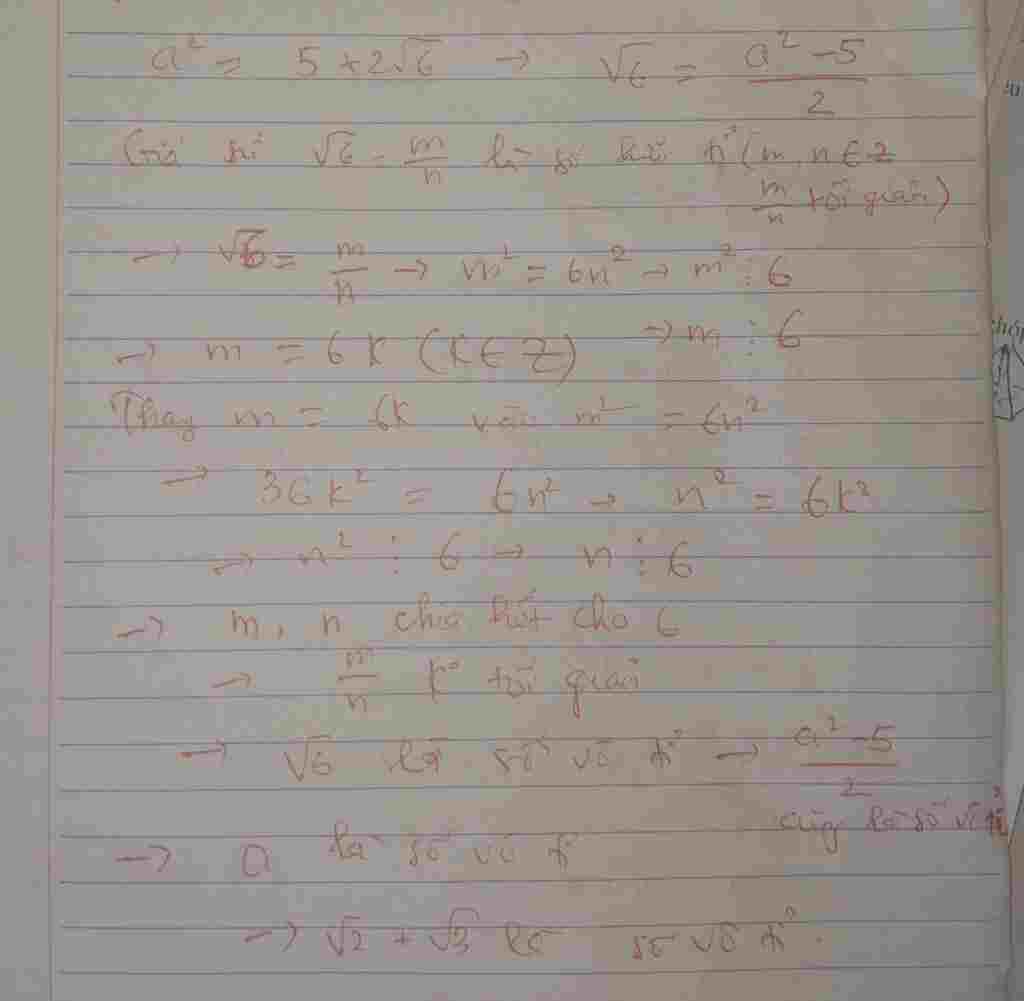 a² = 5 + 2√6 → √6 = (a² - 5)/2
Giả sử √6 = m/n là số hữu tỉ (m, n ∈ Z
m/n tối giản)
→ √6 = m/n → m² = 6n² → m² ⋮ 6
→ m = 6k (k ∈ Z) → m ⋮ 6
Thay m = 6k vào m² = 6n²
→ 36k² = 6n² → n² = 6k²
→ n² ⋮ 6 → n ⋮ 6
→ m, n chia hết cho 6
→ m/n k° tối giản
→ √6 là số vô tỉ → (a² - 5)/2
cũng là số vô tỉ
→ a là số vô tỉ
→ √2 + √3 là số vô tỉ.